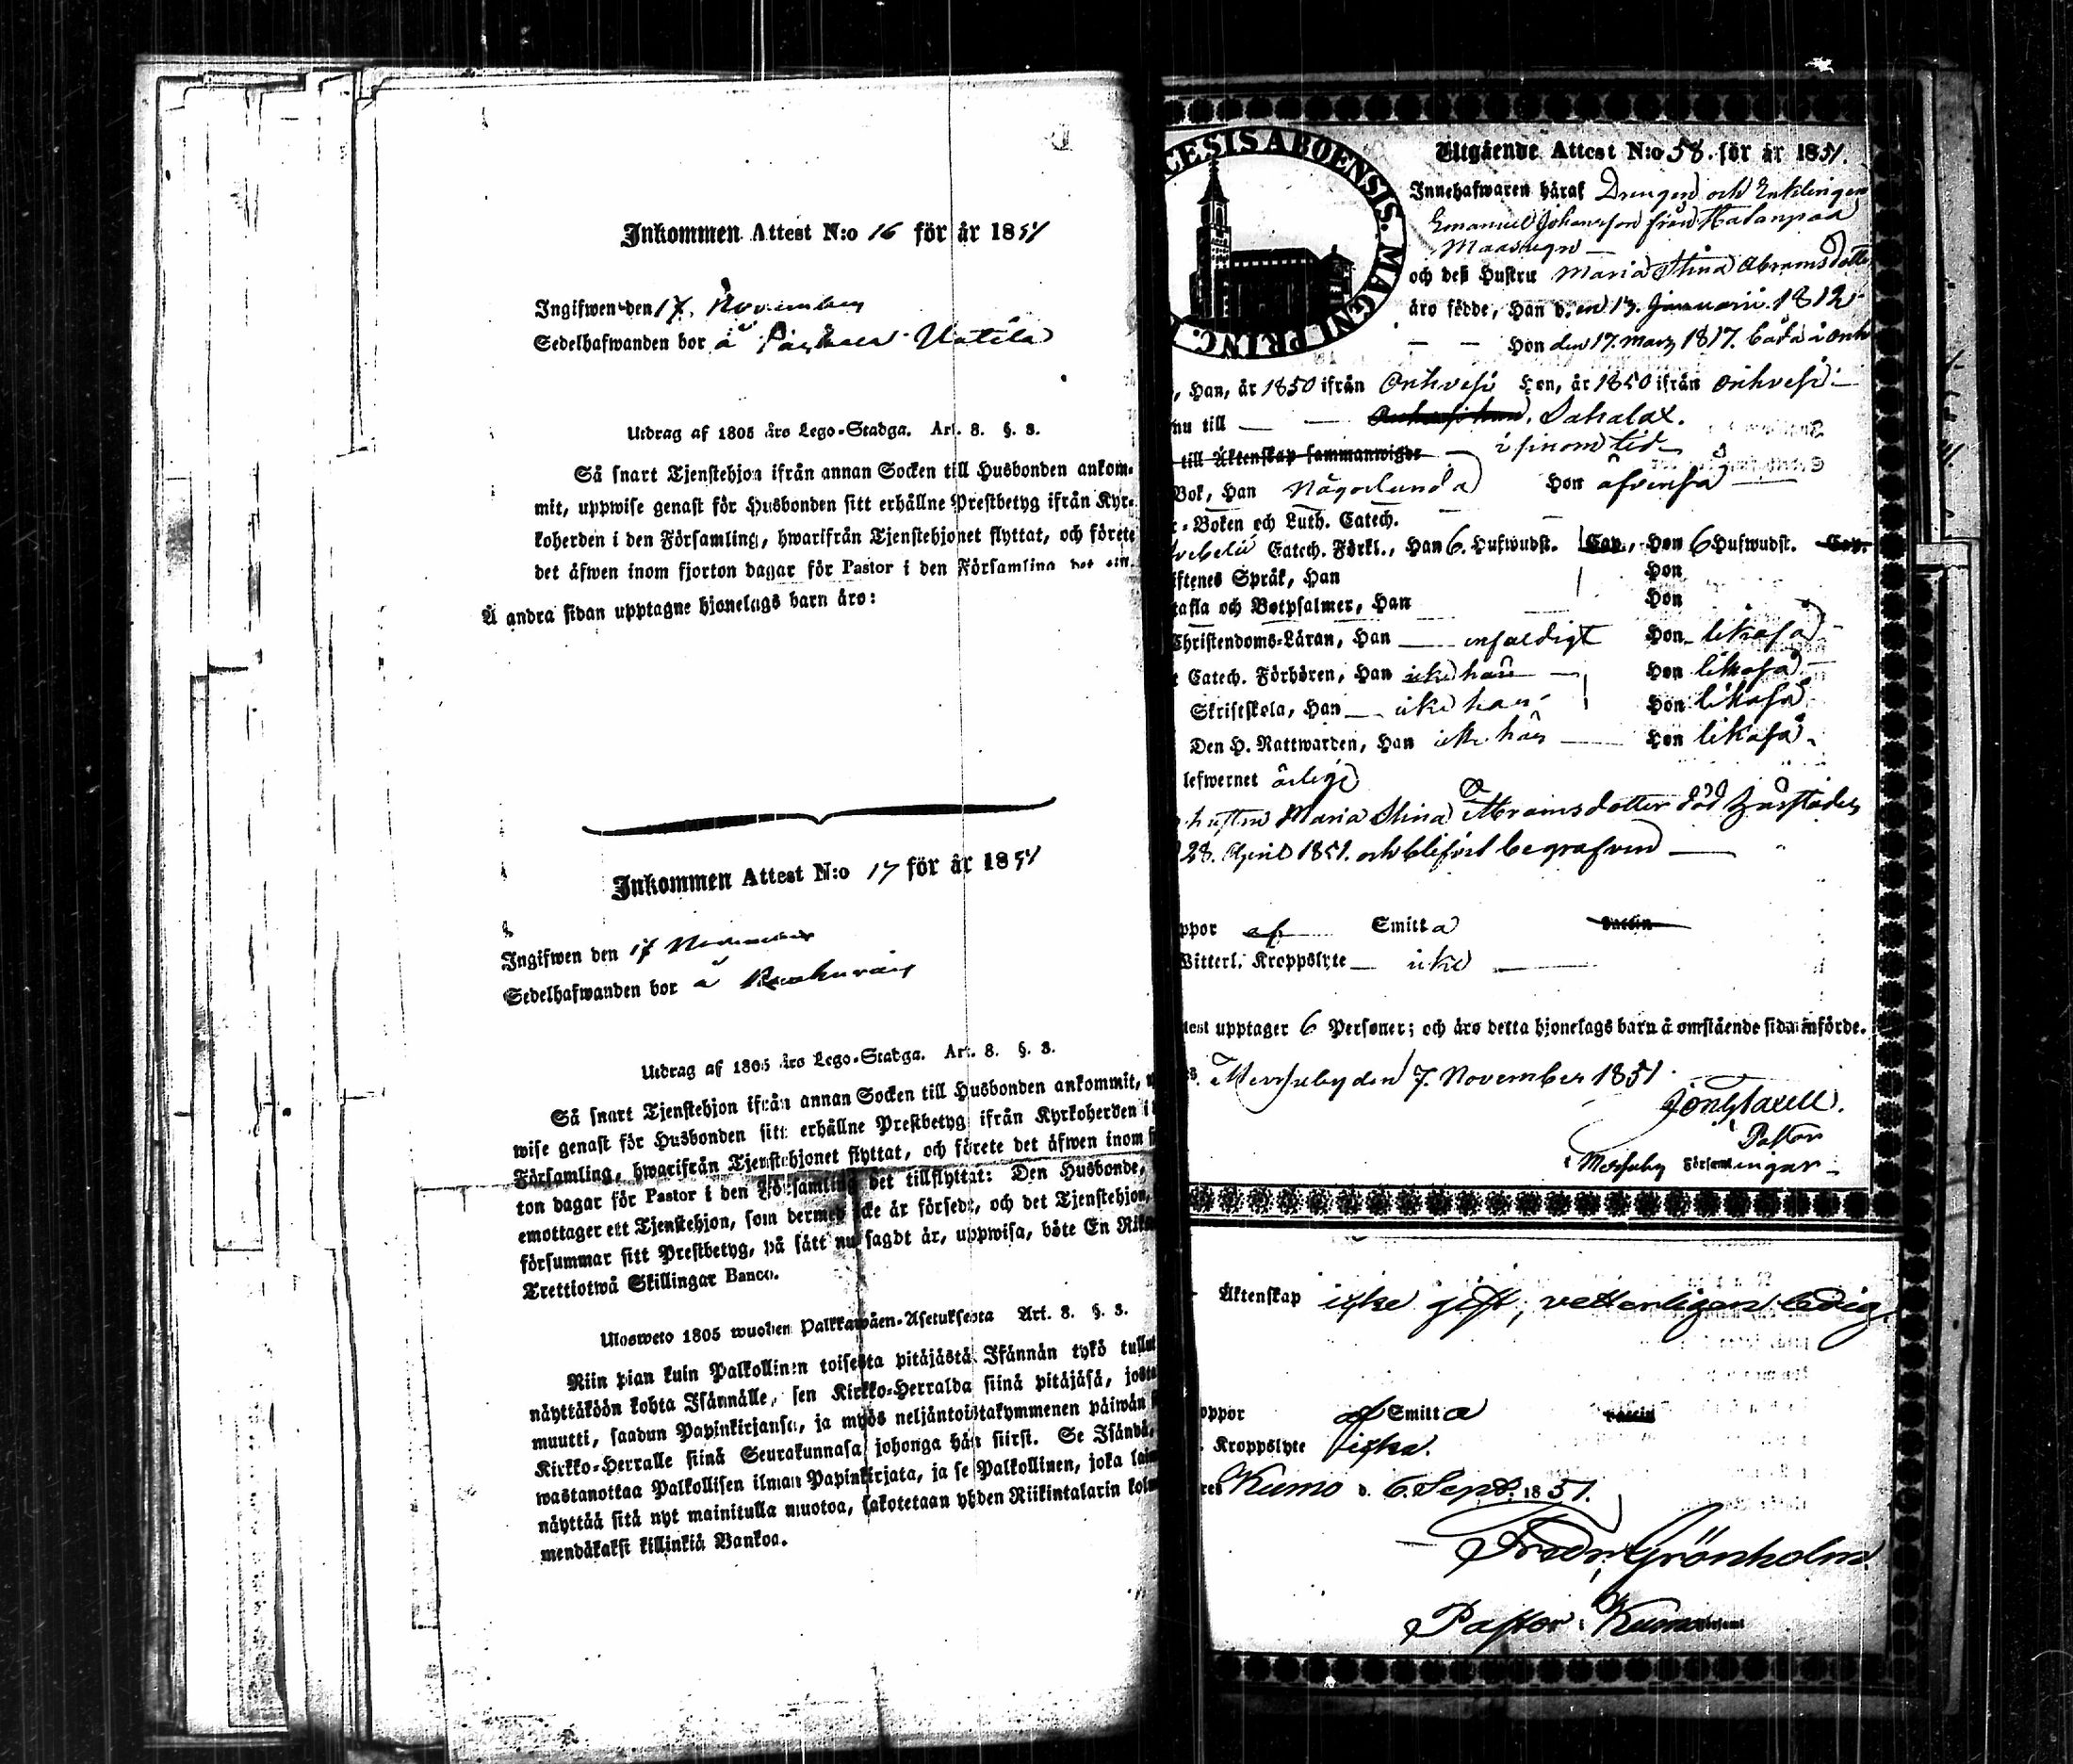 Inkommen Attest N:o 16 för år 1851
Ingifwen den 17. November
Sedelhafwanden bor å
Utdrag af 1805 års Lego-Stadga. Art. 8. §. 3.
Så snart Tjenstehjon ifrån annan Socken till Husbonden ankom-
mit, uppwise genast för Husbonden sitt erhållne Prestbetyg ifrån Kyr-
koherden i den Församling, hwarifrån Tjenstehjonet flyttat, och förete
det äfwen inom fjorton dagar för Pastor i den Församling det
Å andra sidan upptagne hjonelags barn äro:
Inkommen Attest N:o 17 för år 1851
Ingifwen den 17 November
Sedelhafwanden bor å
Utdrag af 1805 års Lego-Stadga. Art. 8. §. 3.
Så snart Tjenstehjon ifrån annan Socken till Husbonden ankommit,
wise genast för Husbonden sitt erhållne Prestbetyg ifrån Kyrkoherden i
Församling, hwarifrån Tjenstehjonet flyttat, och förete det äfwen inom
ton dagar för Pastor i den Församling det tillflyttat: Den Husbonde,
emottager ett Tjenstehjon, som dermed icke är försedt, och det Tjenstehjon,
försummar sitt Prestbetyg, på sätt nu sagdt är, uppwisa, böte En
Trettiotwå Skillingar Banco.
Ulosweto 1805 wuoden Palkkawäen-Asetuksesta Art. 8. §. 3.
Niin pian kuin Palkollinen toisesta pitäjästä Isännän tykö
näyttäköön kohta Isännälle, sen Kirkko-Herralda siinä pitäjäsä,
muutti, saadun Papinkirjansa, ja myös neljäntoistakymmenen päiwän
Kirkko-Herralle siinä Seurakunnasa johonga hän siirsi. Se Isändä,
wastanottaa Palkollisen ilman Papinkirjata, ja se Palkollinen, joka
näyttää sitä nyt mainitulla muotoa, sakotetaan yhden Riikintalarin
mendäkaksi killinkiä Bankoa.
CESIS ABOENSIS. MAGNI PRINC.
Utgående Attest N:o 58. för år 1851.
Innehafwaren häraf Drengen och Enklingen
Emanuel Johansson från
och deß Hustru Maria Stina Abramsdotter
äro födde, Han d. en 13. Januarii 1812
Hon den 17. Mars 1817. båda i
, Han, år 1850 ifrån Honkvesi Hon, år 1850 ifrån
nu till Sahalax.
till Äktenskap sammanwigde i sinom tid
Bok, Han Någorlunda Hon äfvenså
-Boken och Luth. Catech.
Catech. Förkl., Han 6. Hufwudst. Cap., Hon 6 Hufwudst. Cap.
iftenes Språk, Han Hon
tafla och Botpsalmer, Han Hon
Christendoms-Läran, Han enfaldigt Hon likaså
Catech. Förhören, Han icke här Hon likaså
Skriftskola, Han icke här Hon likaså
Den H. Nattwarden, Han icke här Hon likaså
lefwernet ärligt
hustru Maria Stina Abramsdotter död härstädes
28. April 1851. och blifvit begrafven
ppor af Smitta Vaccin
Witterl. Kroppslyte icke
test upptager 6 Personer; och äro detta hjonelags barn å omstående sida införde.
den 7. November 1851.
Pastor
i Församlingar
Äktenskap icke gift, vetterligen ledig
oppor af Smitta Vaccin
Kroppslyte icke.
Kumo d. 6. Sept. 1851.
Fredr. Grönholm
Pastor i Kumo Församl